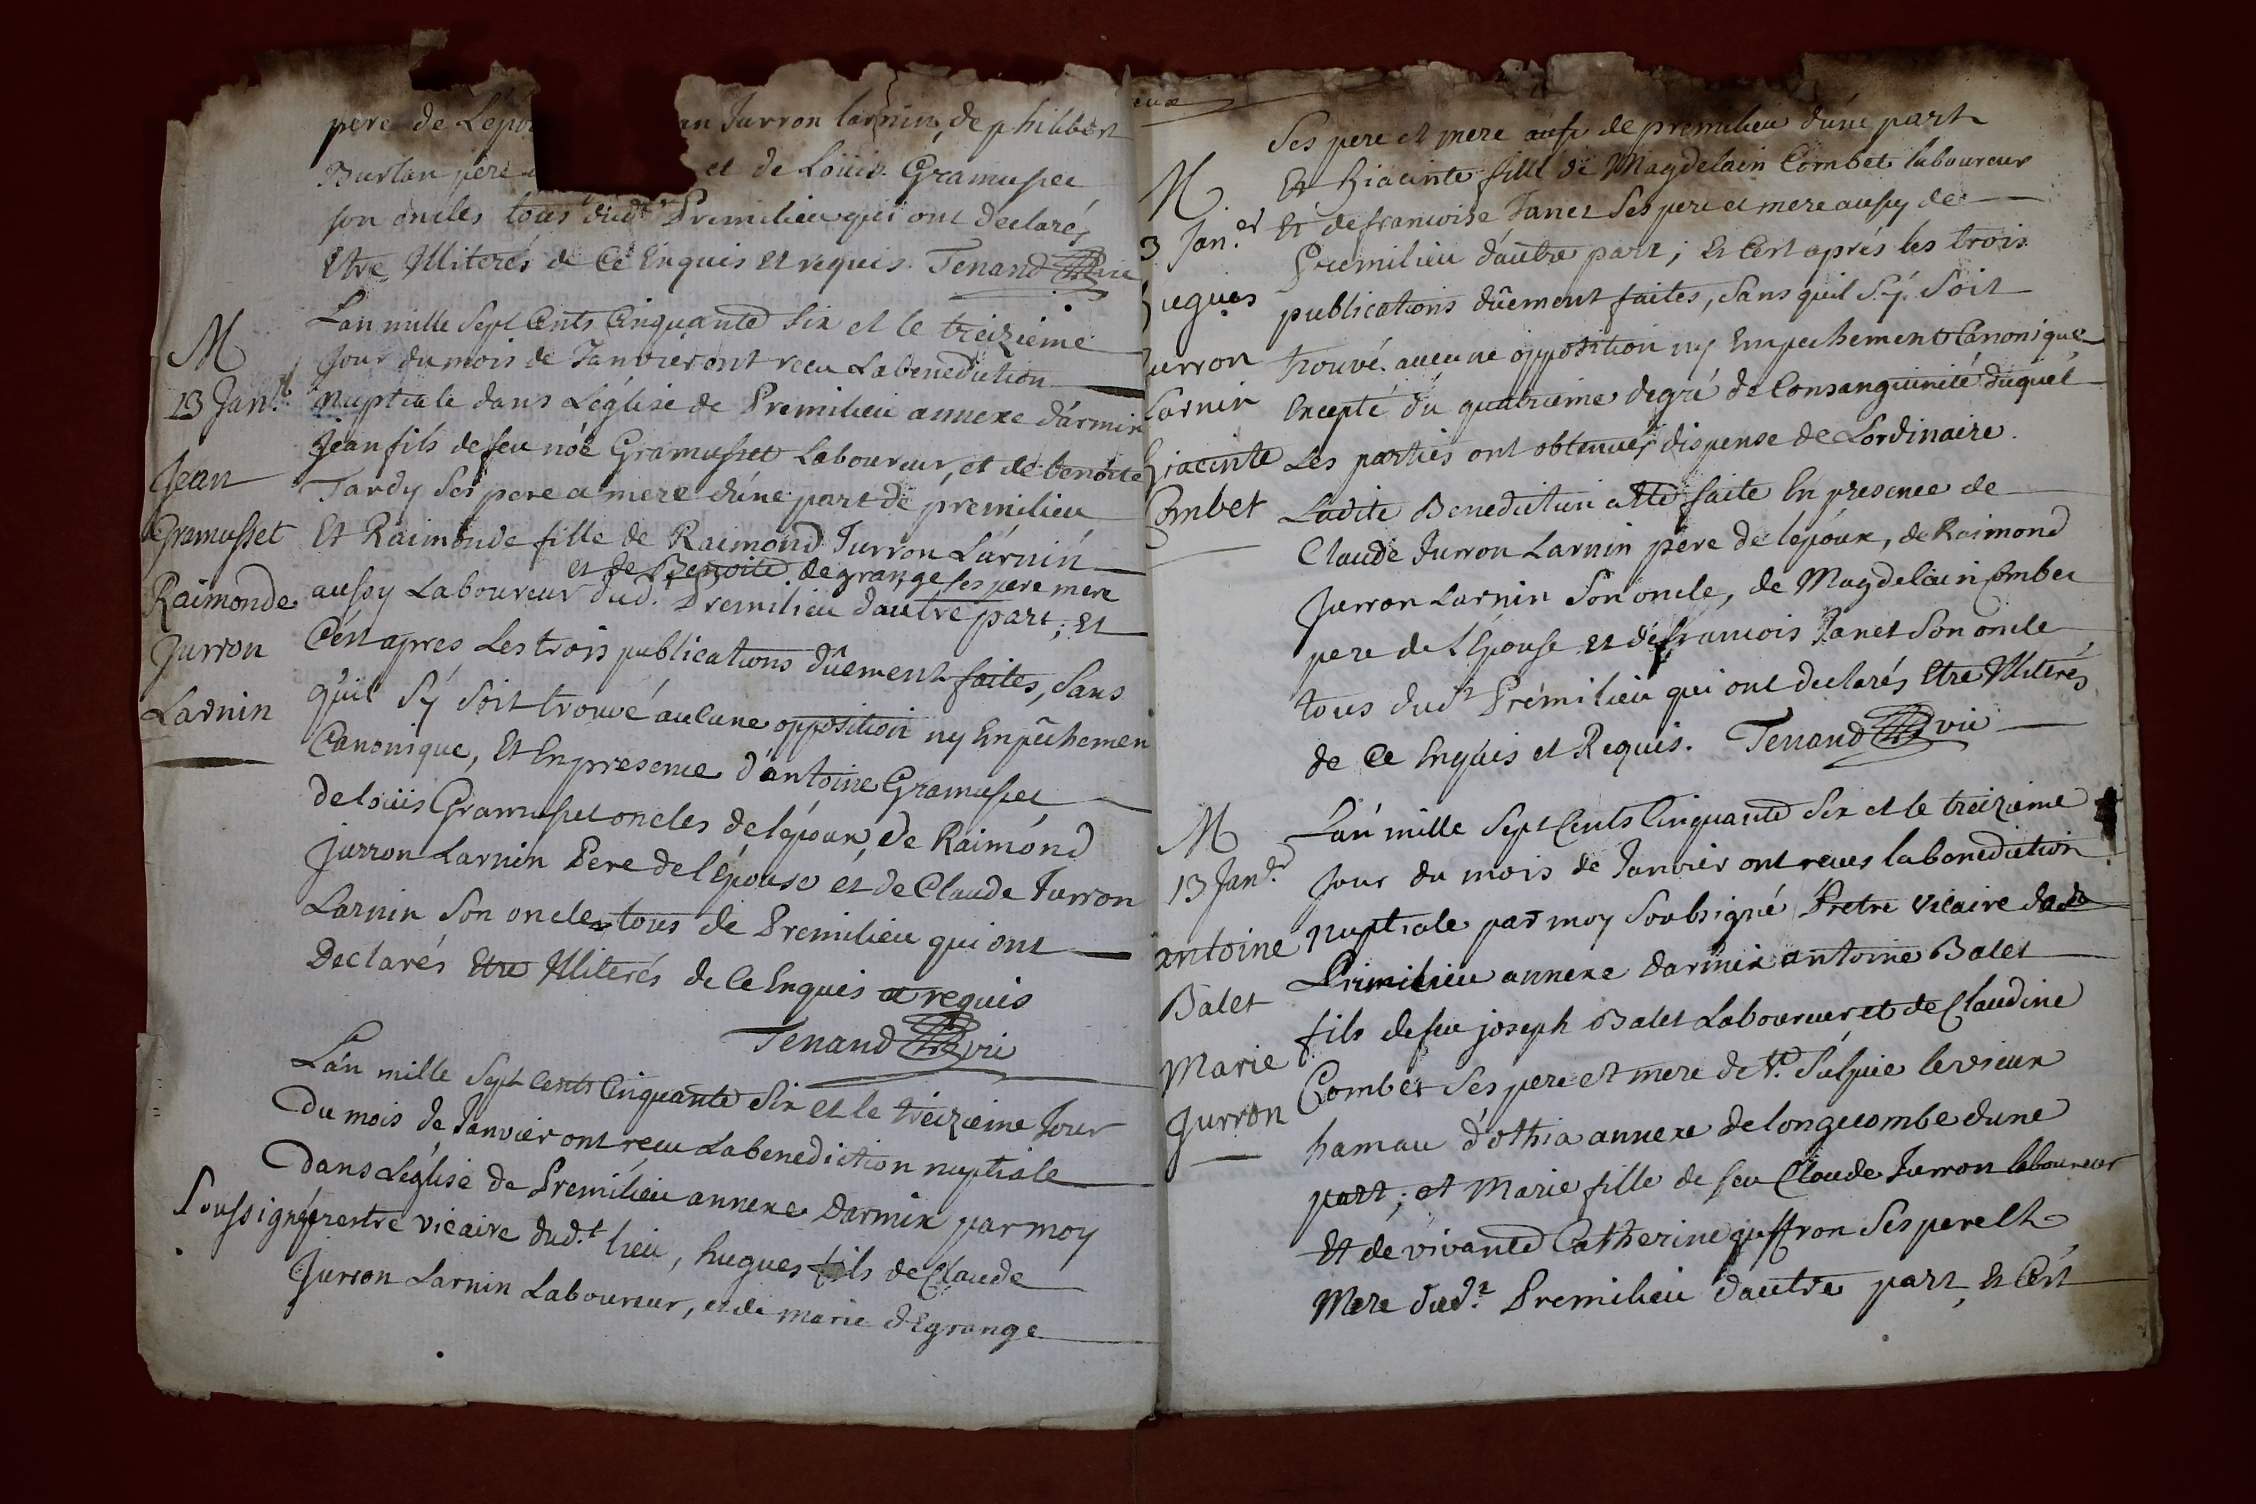 pere de Lépo an Jurron larnin, de philibert
Burlan père et de Loüis Gramusset
son oncles tous dud.t Premilieu qui ont declarés
Etre Illiterés de Ce Enquis et requis. Tenand vic
M
13 Jan.r
Jean
Gramusset
Raimonde
Jurron
Larnin
Lan mille Sept Cents Cinquante Six et le treizieme
Jour du mois de Janvier ont recu La benediction
Nuptiale dans L'église de Premilieu annexe d'armix
Jean fils de feu noé Gramusset Laboureur, et de benoite
Tardy Ses pere et mere d'une part de premilieu
Et Raimonde fille de Raimond Jurron Larnin
et de Benoite degrange ses pere mere
aussy Laboureur dud.t Premilieu dautre part; et
C'ért apres Les trois publications dûement faites, Sans
qu'il Sÿ Soit trouvé aucune opposition ny Empêchemen
Canonique, Et En presence d'antoine Gramusset
de loüis Gramusset oncles de lépoux, de Raimond
Jurron Larnin Pere de l'épouse et de Claude Jurron
Larnin Son oncle tous de Premilieu qui ont
Declarés Etre Illiterés de Ce Enquis et requis
Tenand vic
L'an mille Sept Cents Cinquante Six et le treizieme Jour
Du mois de Janvier ont reçu La benediction nuptiale
Dans L'église de Premilieu annexe Darmix par moy
Soussigné prestre vicaire dud.t lieu, hugues fils de Claude
Jurron Larnin Laboureur, et de marie dEgrange
M
3 Jan.er
hugues
Jurron
Larnin
hiacinte
Combet
Ses pere et mere aussi de premilieu d'une part
Et hiacinte fille de Magdelain Combet laboureur
Et de francoise Janet Ses pere et mere aussy de
Premilieu d'autre part; Et C'ert aprés les trois
publications dûement faites, Sans quil S.ÿ. Soit
trouvé aucune opposition ny Empechement Canonique
Excepté du quatrieme degré de Consanguinité duquel
Les parties ont obtenües dispense de Lordinaire.
Ladite Benediction a Eté faite En presence de
Claude Jurron Larnin père de lépoux, de Raimond
Jurron Larnin Son oncle, de Magdelain Combet
pere de L'Epouse et de francois Janet Son oncle
tous dud.t Prémilieu qui ont declarés Etre Illiterés
de Ce Enquis et Requis. Tenand vic
M
13 Jan.er
antoine
Balet
Marie
Jurron
Lan mille Sept Cents Cinquante Six et le treizieme
Jour du mois de Janvier ont reçues la benediction
Nuptiale par moy Soubsigné Prêtre Vicaire
Primilieu annexe darmix antoine Balet
fils de feu joseph Balet Laboureur et de Claudine
Combet Ses pere et mere de St. Sulpice le vieux
hamau d'othia annexe de longecombe dune
part; et Marie fille de feu Claude Jurron laboureur
Et de vivante Catherine juffron Ses pere Et
Mere dud.t Premilieu dautre part, Et C'ert